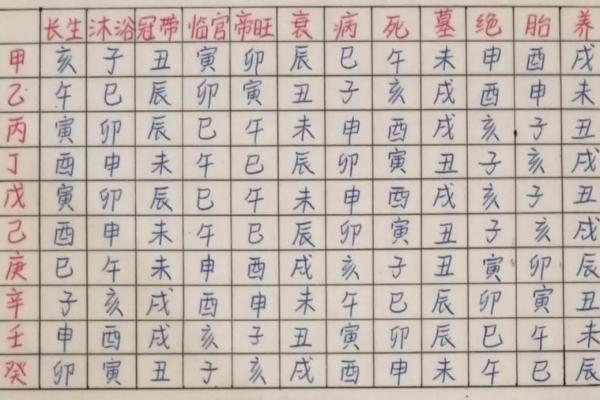 长生 沐浴 冠带 临官 帝旺 衰 病 死 墓 绝 胎 养
甲 亥 子 丑 寅 卯 辰 巳 午 未 申 酉 戌
乙 午 巳 辰 卯 寅 丑 子 亥 戌 酉 申 未
丙 寅 卯 辰 巳 午 未 申 酉 戌 亥 子 丑
丁 酉 申 未 午 巳 辰 卯 寅 丑 子 亥 戌
戊 寅 卯 辰 巳 午 未 申 酉 戌 亥 子 丑
己 酉 申 未 午 巳 辰 卯 寅 丑 子 亥 戌
庚 巳 午 未 申 酉 戌 亥 子 丑 寅 卯 辰
辛 子 亥 戌 酉 申 未 午 巳 辰 卯 寅 丑
壬 申 酉 戌 亥 子 丑 寅 卯 辰 巳 午 未
癸 卯 寅 丑 子 亥 戌 酉 申 未 午 巳 辰